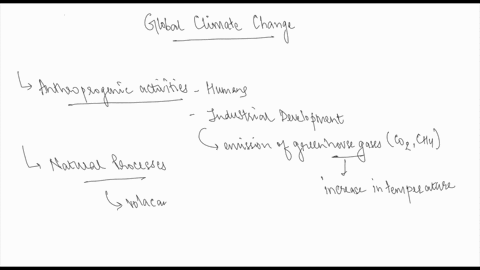 Global Climate Change
Anthroprogenic activities - Humans
- Industrial Development
emission of greenhouse gases (CO2, CH4)
Natural Processes
increase in temperature
volaca